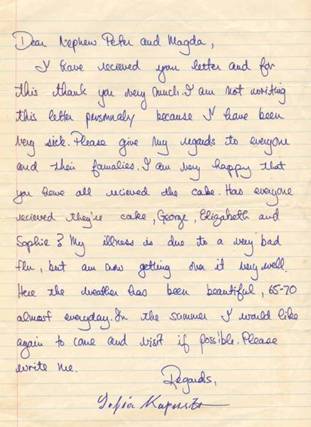 Dear Nephew Peter and Magda,
I have recieved your letter and for
this thank you very much. I am not writing
this letter personaly because I have been
very sick. Please give my regards to everyone
and their famalies. I am very happy that
you have all recieved the cake. Has everyone
recieved they're cake, George, Elizabeth and
Sophie? My illness is due to a very bad
flu, but am now getting over it very well.
Here the weather has been beautiful, 65-70
almost everyday. In the summer I would like
again to come and visit if possible. Please
write me.
Regards,